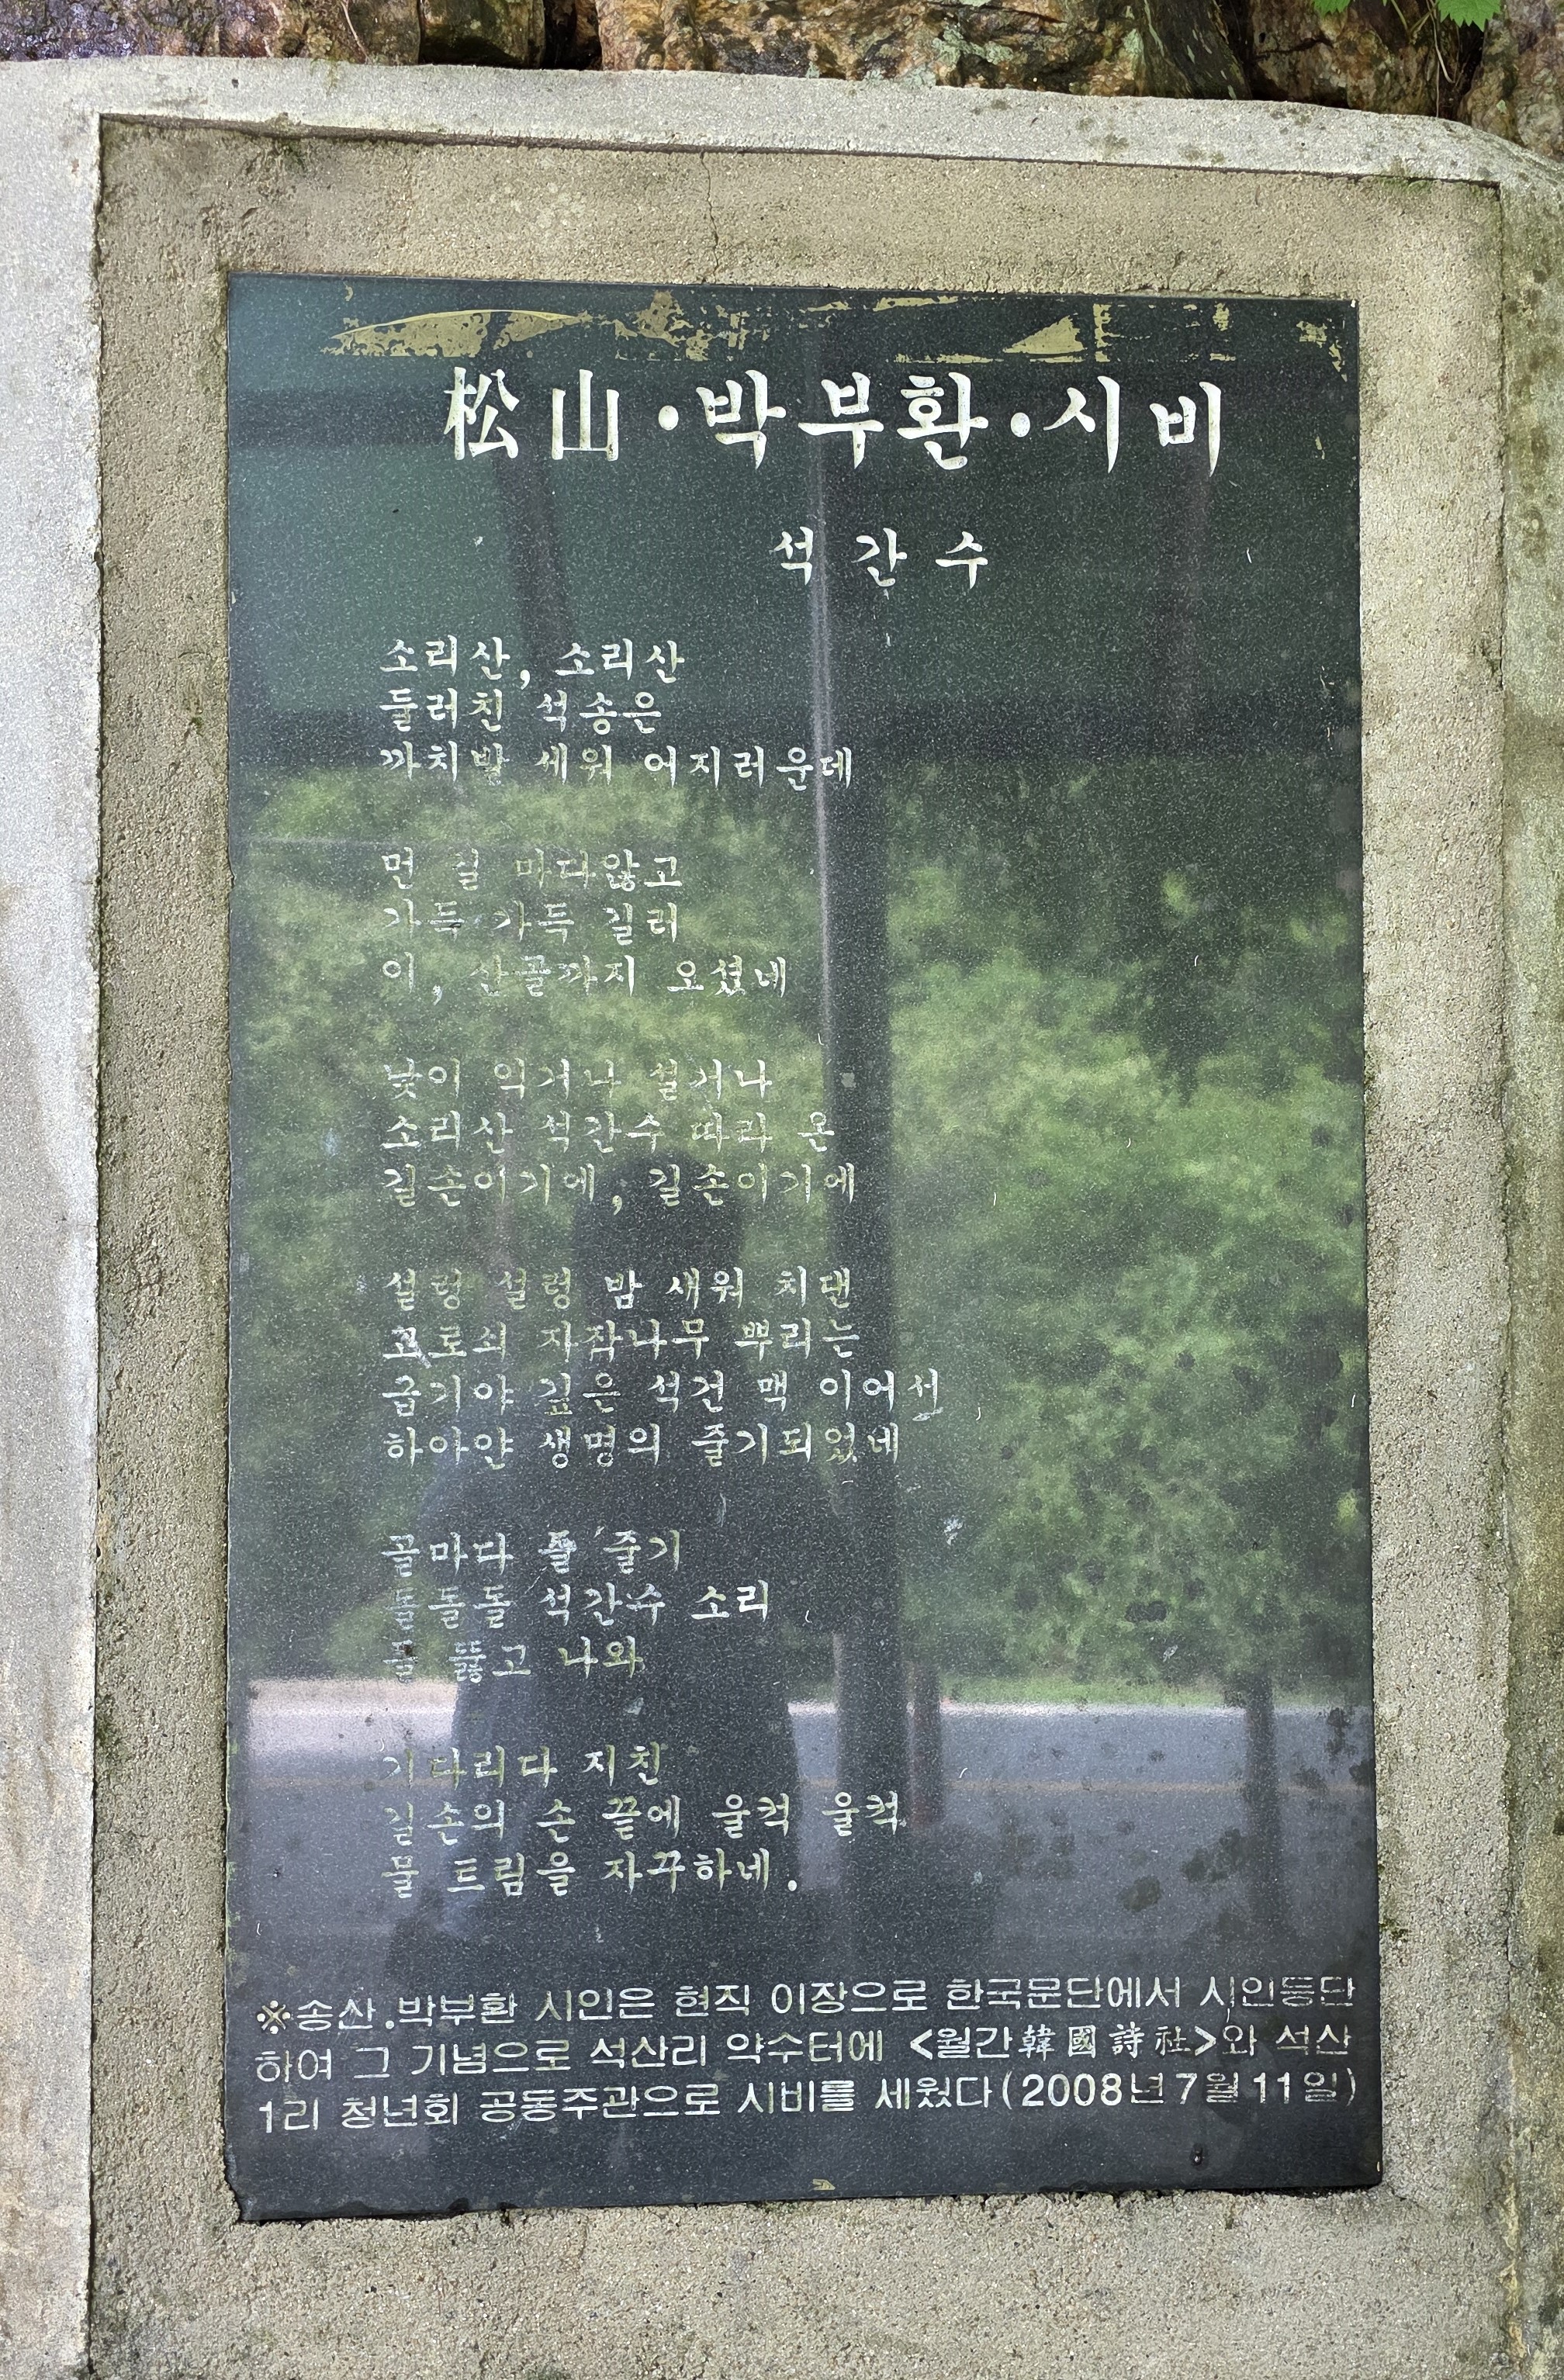 松山·박부환·시비
석간수
소리산, 소리산
둘러친 석송은
까치발 세워 어지러운데
먼 길 마다않고
가득 가득 길러
이, 산골까지 오셨네
낯이 익거나 설거나
소리산 석간수 따라 온
길손이기에, 길손이기에
설렁 설렁 밤 새워 치댄
고로쇠 자작나무 뿌리는
급기야 깊은 석건 맥 이어서
하아얀 생명의 줄기되었네
골마다 줄기
돌돌돌 석간수 소리
뚫고 나와
기다리다 지친
길손의 손 끝에 울컥 울컥
물 트림을 자꾸하네.
※송산.박부환 시인은 현직 이장으로 한국문단에서 시인등단
하여 그 기념으로 석산리 약수터에 <월간韓國詩社>와 석산
1리 청년회 공동주관으로 시비를 세웠다(2008년7월11일)